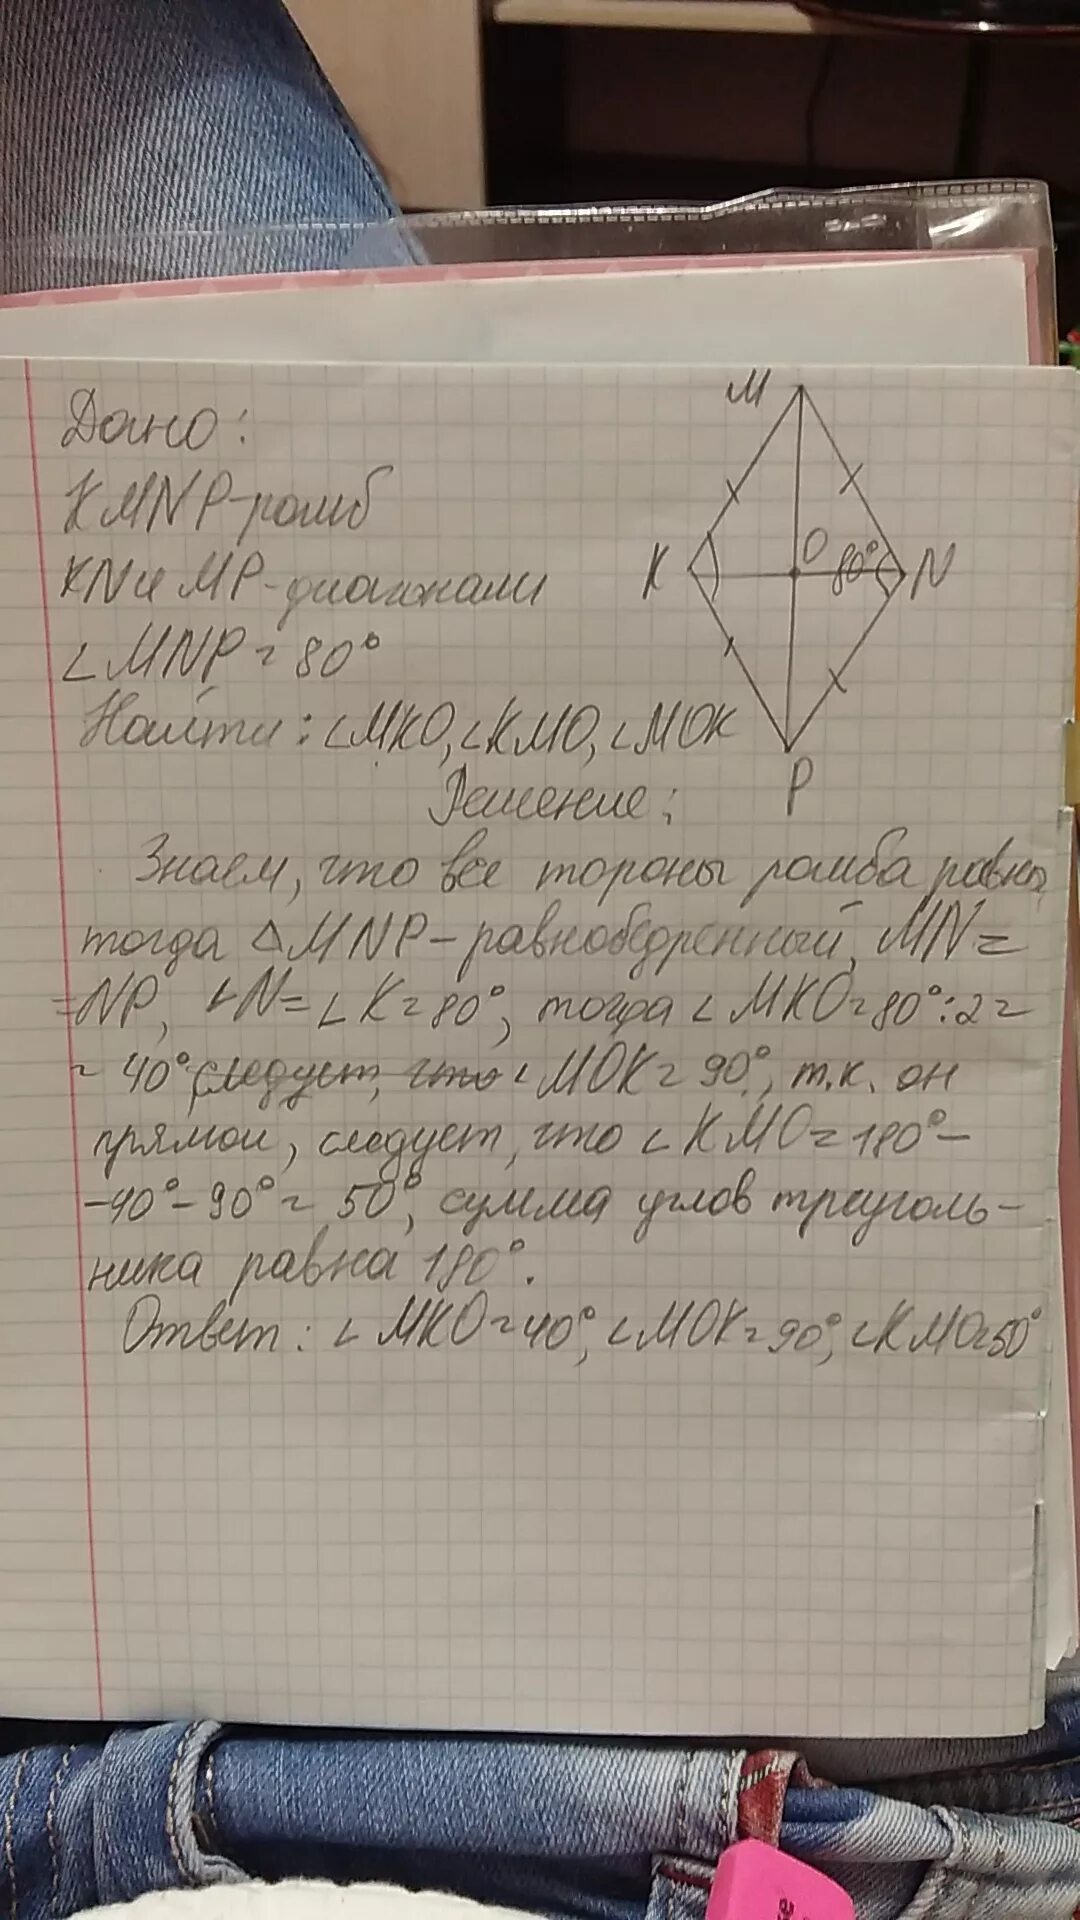 Дано:
M
KMNP-ромб
KN и MP-диагонали
K O 80° N
∠MNP = 80°
Найти: ∠MKO, ∠KMO, ∠MOK
P
Решение:
Знаем, что все тороны ромба равны,
тогда ΔMNP-равнобедренный, MN=
=NP, ∠N=∠K=80°, тогда ∠MKO=80°:2=
= 40° следует, что ∠MOK=90°, т.к. он
прямой, следует, что ∠KMO=180°-
-40°-90°=50°, сумма углов треуголь-
ника равна 180°.
Ответ: ∠MKO=40°, ∠MOK=90°, ∠KMO=50°